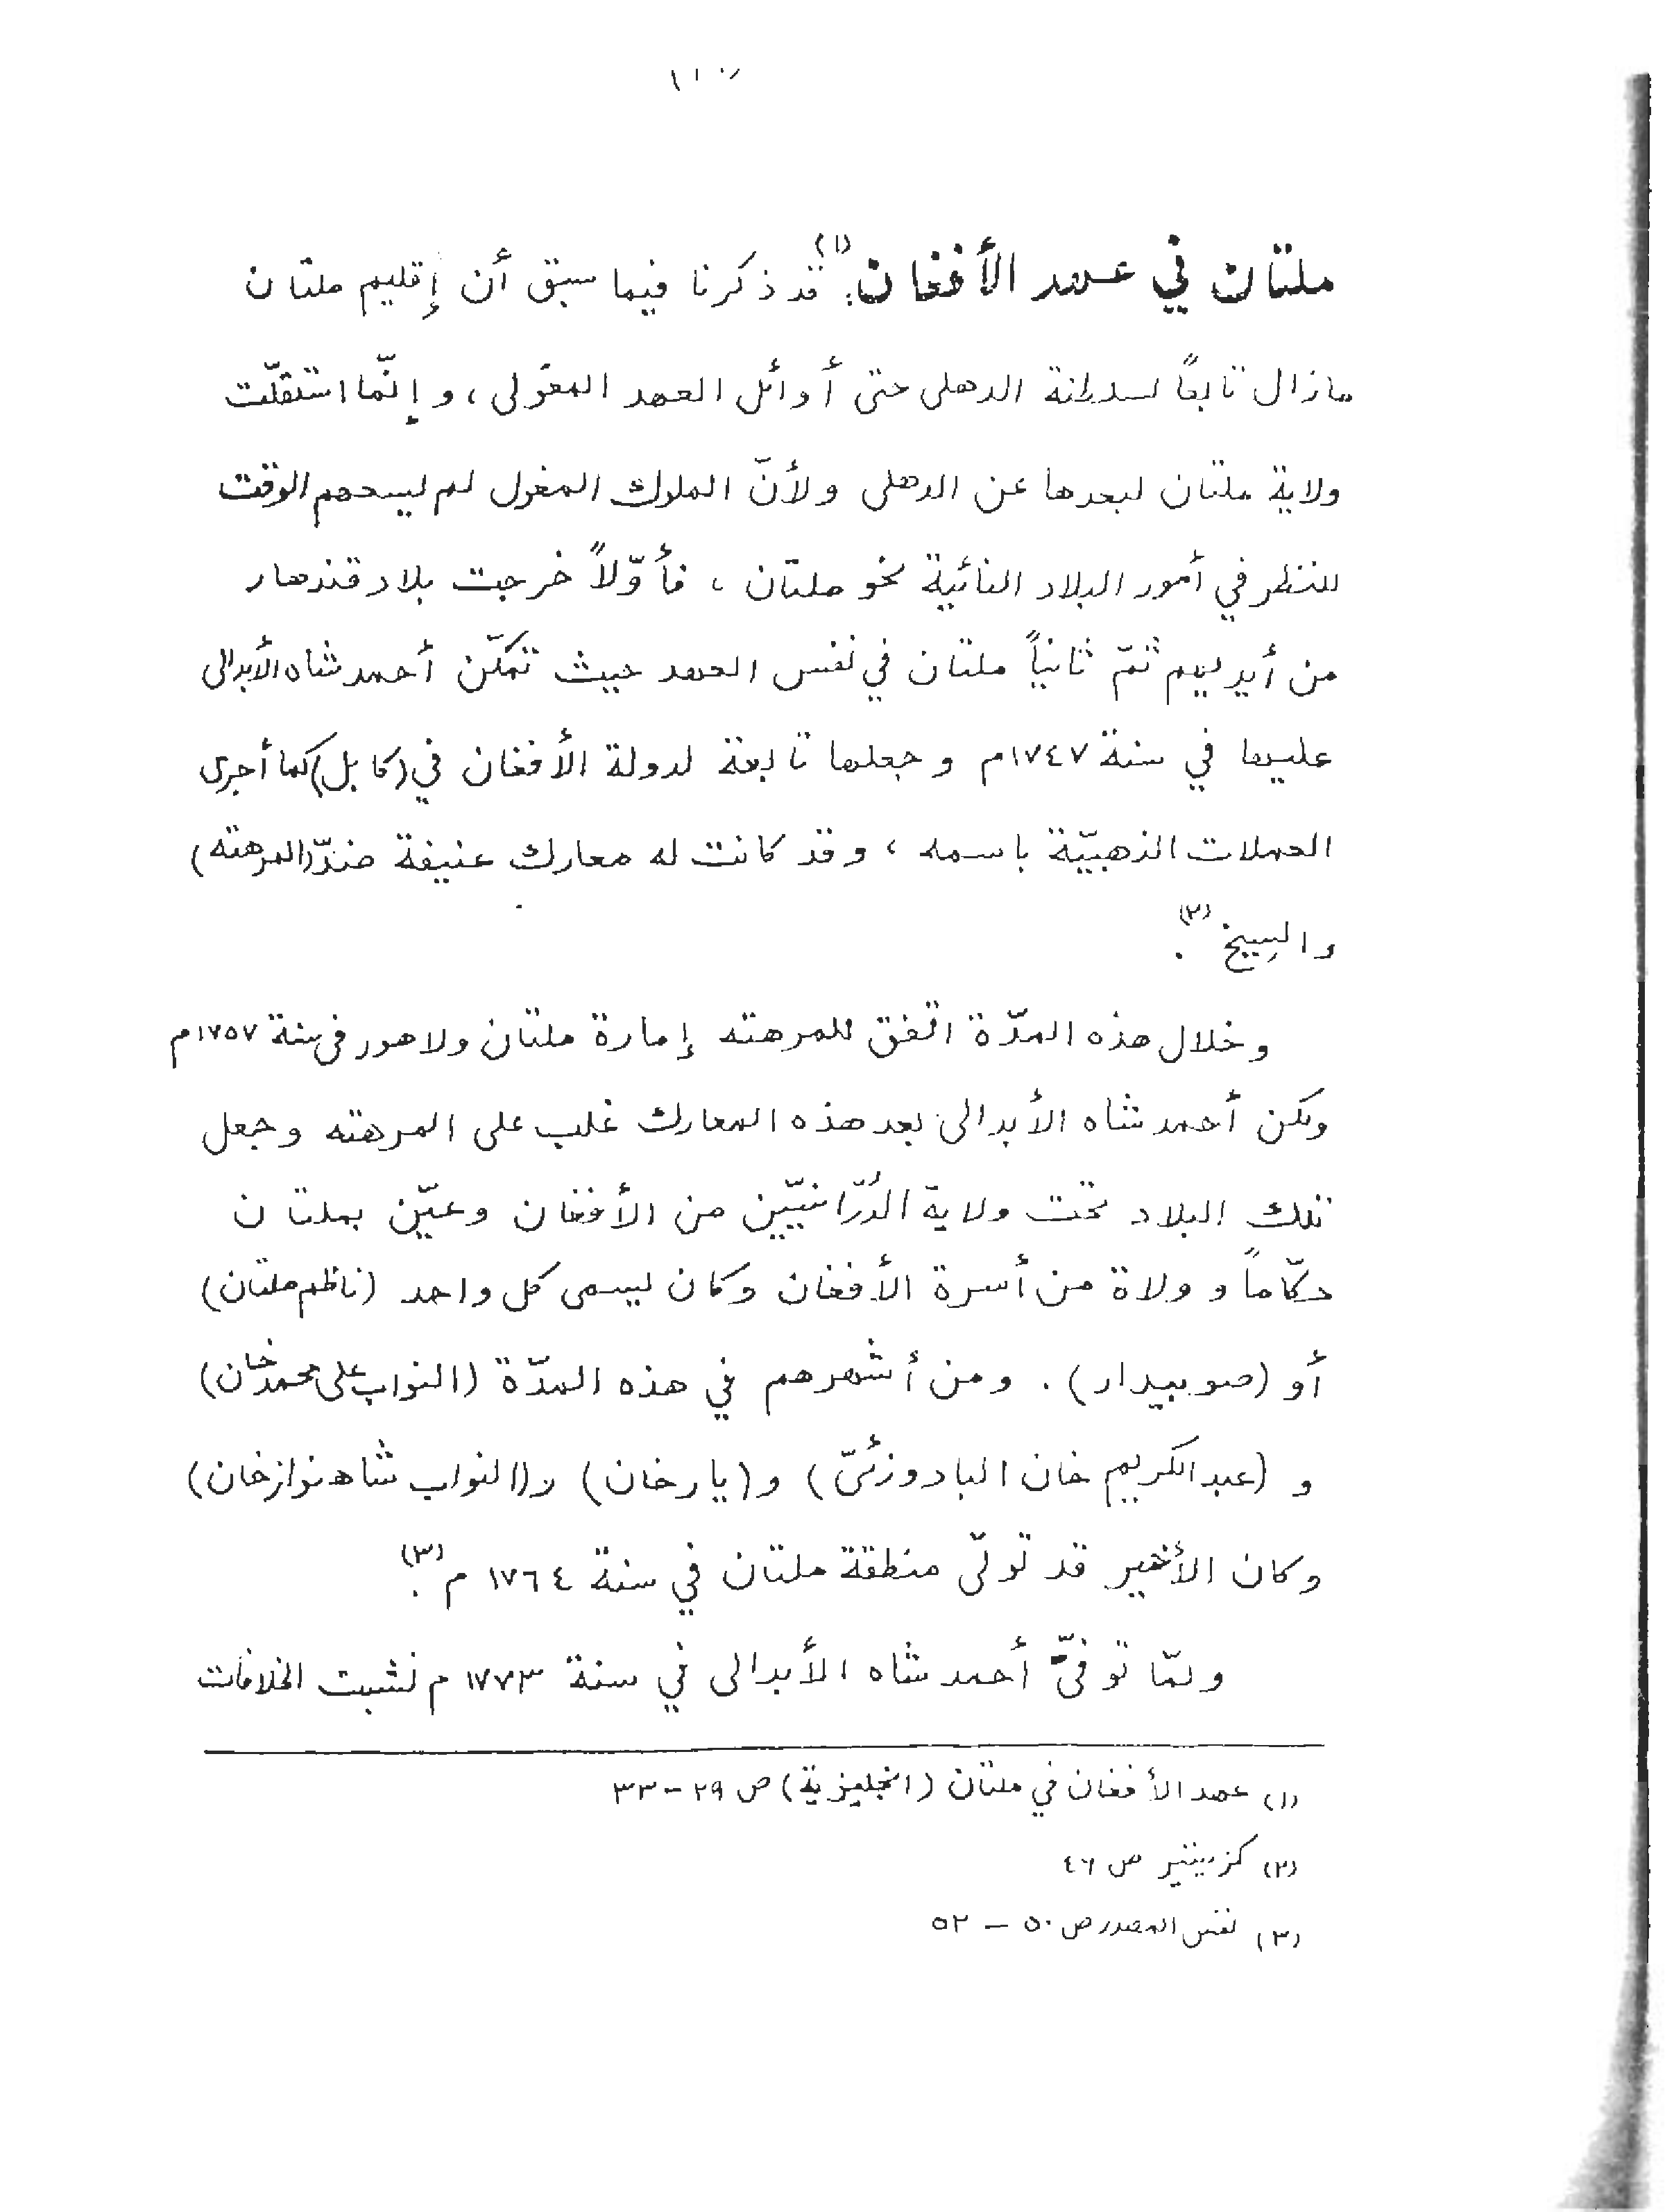 ملتان في عهد الأفغان:(١) قد ذكرنا فيما سبق أن إقليم ملتان
مازال تابعًا لسلطنة الدهلى حتى أوائل العهد المغولى، وإنّما استقلّت
ولاية ملتان لبعدها عن الدهلى ولأنّ الملوك المغول لم يسعهم الوقت
للنظر في أمور البلاد النائية نحو ملتان، فأوّلاً خرجت بلاد قندهار
من أيديهم ثمّ ثانياً ملتان في نفس العهد حيث تمكّن أحمد شاه الأبدالى
عليها في سنة ١٧٤٧م وجعلها تابعة لدولة الأفغان في (كابل) كما أجرى
العملات الذهبيّة باسمه، وقد كانت له معارك عنيفة ضدّ (المرهته)
والسيخ(٢).
وخلال هذه المدّة اتفق للمرهته إمارة ملتان ولاهور في سنة ١٧٥٧م
ولكن أحمد شاه الأبدالى بعد هذه المعارك غلب على المرهته وجعل
تلك البلاد تحت ولاية الدُرّانيّين من الأفغان وعيّن بملتان
حكّاماً وولاة من أسرة الأفغان وكان يسمى كل واحد (ناظم ملتان)
أو (صوبيدار). ومن أشهرهم في هذه المدّة (النواب على محمد خان)
و (عبد الكريم خان البادوزئىّ) و(يار خان) و(النواب شاه نواز خان)
وكان الأخير قد تولّى منطقة ملتان في سنة ١٧٦٤ م(٣).
ولمّا توفىّ أحمد شاه الأبدالى في سنة ١٧٧٣ م نشبت الخلافات
(١) عهد الأفغان في ملتان (انجليزية) ص ٢٩-٣٣
(٢) كزيتير ص ٤٦
(٣) نفس المصدر ص ٥٠ – ٥٢